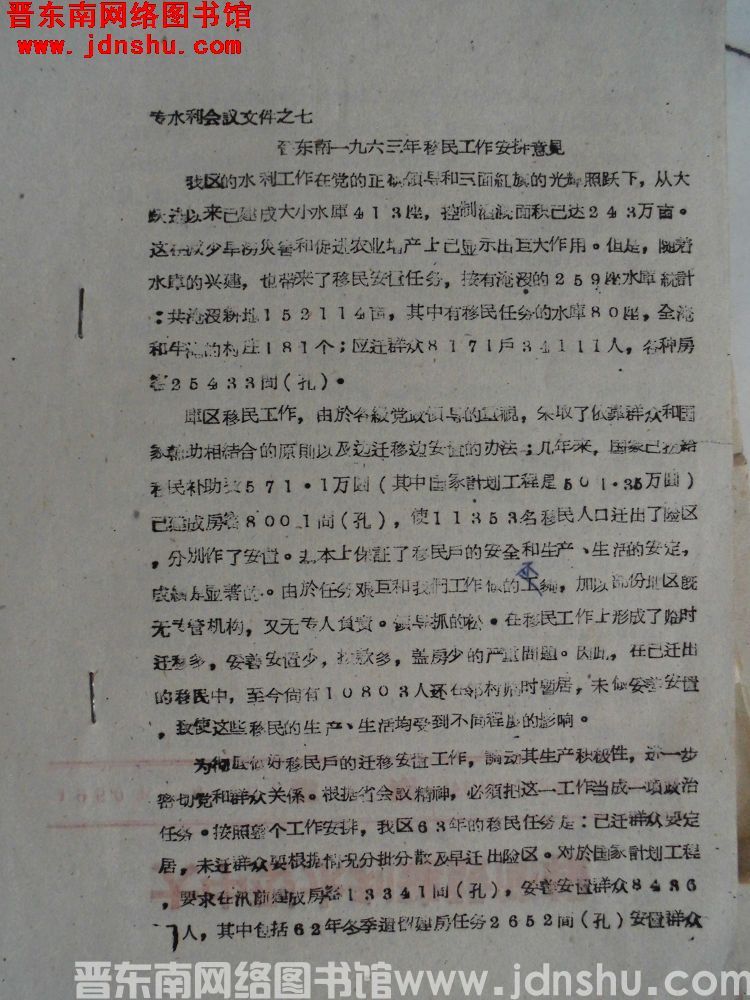 晋东南网络图书馆
www.jdnshu.com
专水利会议文件之七
晋东南一九六三年移民工作安排意见
我区的水利工作在党的正确领导和三面紅旗的光輝照跃下，从大
跃进以来已建成大小水庫413座，控制流域面积已达243万亩。
这在减少旱涝災害和促进农业增产上已显示出巨大作用。但是，随着
水庫的兴建，也帶来了移民安置任务，按有淹没的259座水庫統計
：共淹没耕地152114亩，其中有移民任务的水庫80座，全淹
和半淹的村庄181个；应迁群众8171戶34111人，各种房
窑25433間（孔）。
庫区移民工作，由於各級党政領导的重視，采取了依靠群众和国
家輔助相結合的原則以及边迁移边安置的办法；几年来，国家已拨給
移民补助款571.1万圓（其中国家計划工程是501.35万圓）
已建成房窑8001間（孔），使11353名移民人口迁出了险区
，分別作了安置。基本上保証了移民戶的安全和生产、生活的安定，
成績是显著的。由於任务艰巨和我們工作做的不細，加以部份地区既
无专管机构，又无专人負責。領导抓的松。在移民工作上形成了临时
迁移多，妥善安置少，拨款多，盖房少的严重問題。因此，在已迁出
的移民中，至今尙有10803人还在邻村临时暫居，未做妥善安置
，致使这些移民的生产、生活均受到不同程度的影响。
为彻底做好移民戶的迁移安置工作，調动其生产积极性，进一步
密切党和群众关係。根据省会議精神，必須把这一工作当成一項政治
任务。按照整个工作安排，我区63年的移民任务是：已迁群众要定
居，未迁群众要根据情况分批分散及早迁出险区。对於国家計划工程
，要求在汛前建成房窑13341間（孔），妥善安置群众8436
人，其中包括62年冬季遺留建房任务2652間（孔）安置群众
晋东南网络图书馆www.jdnshu.com